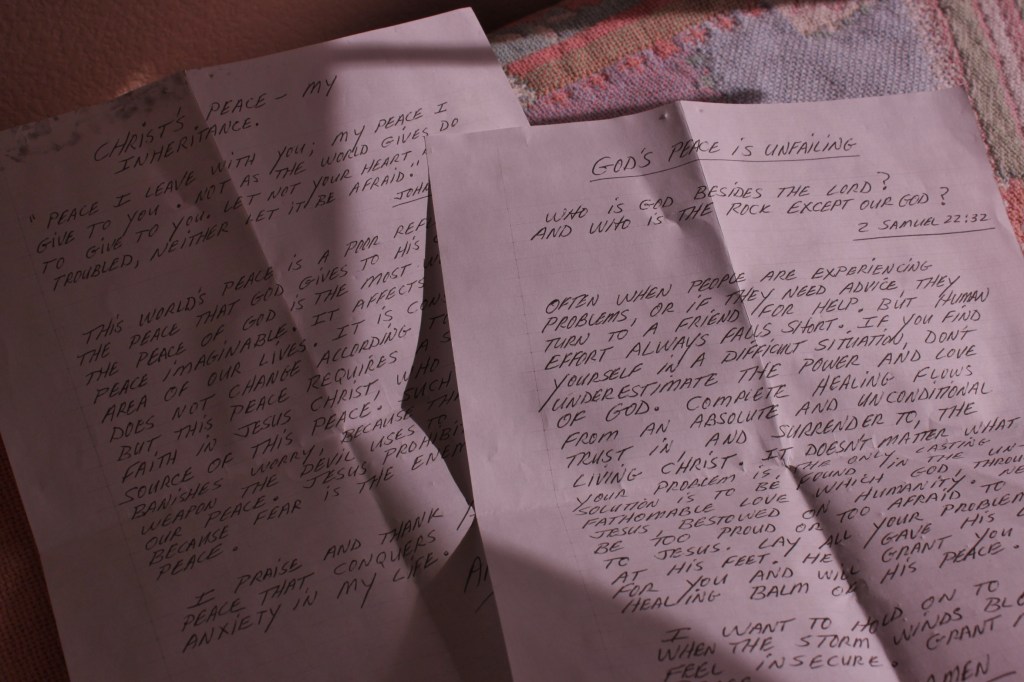 CHRIST'S PEACE – MY
INHERITANCE.
"PEACE I LEAVE WITH YOU; MY PEACE I
GIVE TO YOU. NOT AS THE WORLD GIVES DO
TO GIVE TO YOU. LET NOT YOUR HEART
TROUBLED, NEITHER LET IT BE AFRAID."
JOHN
THIS WORLD'S PEACE IS A POOR
THE PEACE THAT GOD GIVES TO HIS
THE PEACE OF GOD IS THE MOST
PEACE IMAGINABLE. IT AFFECTS
AREA OF OUR LIVES. IT IS
DOES NOT CHANGE ACCORDING
BUT THIS PEACE REQUIRES A
FAITH IN JESUS CHRIST, WHO
SOURCE OF THIS PEACE. SUCH
BANISHES WORRY, BECAUSE
WEAPON THE DEVIL USES TO
OUR PEACE. JESUS
BECAUSE FEAR IS THE
PEACE.
I PRAISE AND THANK
PEACE THAT CONQUERS
ANXIETY IN MY LIFE.
GOD'S PEACE IS UNFAILING
WHO IS GOD BESIDES THE LORD?
AND WHO IS THE ROCK EXCEPT OUR GOD?
2 SAMUEL 22:32
OFTEN WHEN PEOPLE ARE EXPERIENCING
PROBLEMS, OR IF THEY NEED ADVICE, THEY
TURN TO A FRIEND FOR HELP. BUT HUMAN
EFFORT ALWAYS FALLS SHORT. IF YOU FIND
YOURSELF IN A DIFFICULT SITUATION, DONT
UNDERESTIMATE THE POWER AND LOVE
OF GOD. COMPLETE HEALING FLOWS
FROM AN ABSOLUTE AND UNCONDITIONAL
TRUST IN, AND SURRENDER TO, THE
LIVING CHRIST. IT DOESN'T MATTER WHAT
YOUR PROBLEM IS, THE ONLY LASTING
SOLUTION IS TO BE FOUND IN THE UN-
FATHOMABLE LOVE WHICH GOD, THROUGH
JESUS, BESTOWED ON HUMANITY.
BE TOO PROUD OR TOO AFRAID TO
TO JESUS. LAY ALL YOUR PROBLEM
AT HIS FEET. HE GAVE HIS
FOR YOU AND WILL GRANT YOU
HEALING BALM OF HIS PEACE.
I WANT TO HOLD ON TO
WHEN THE STORM WINDS
FEEL INSECURE. GRANT
AMEN